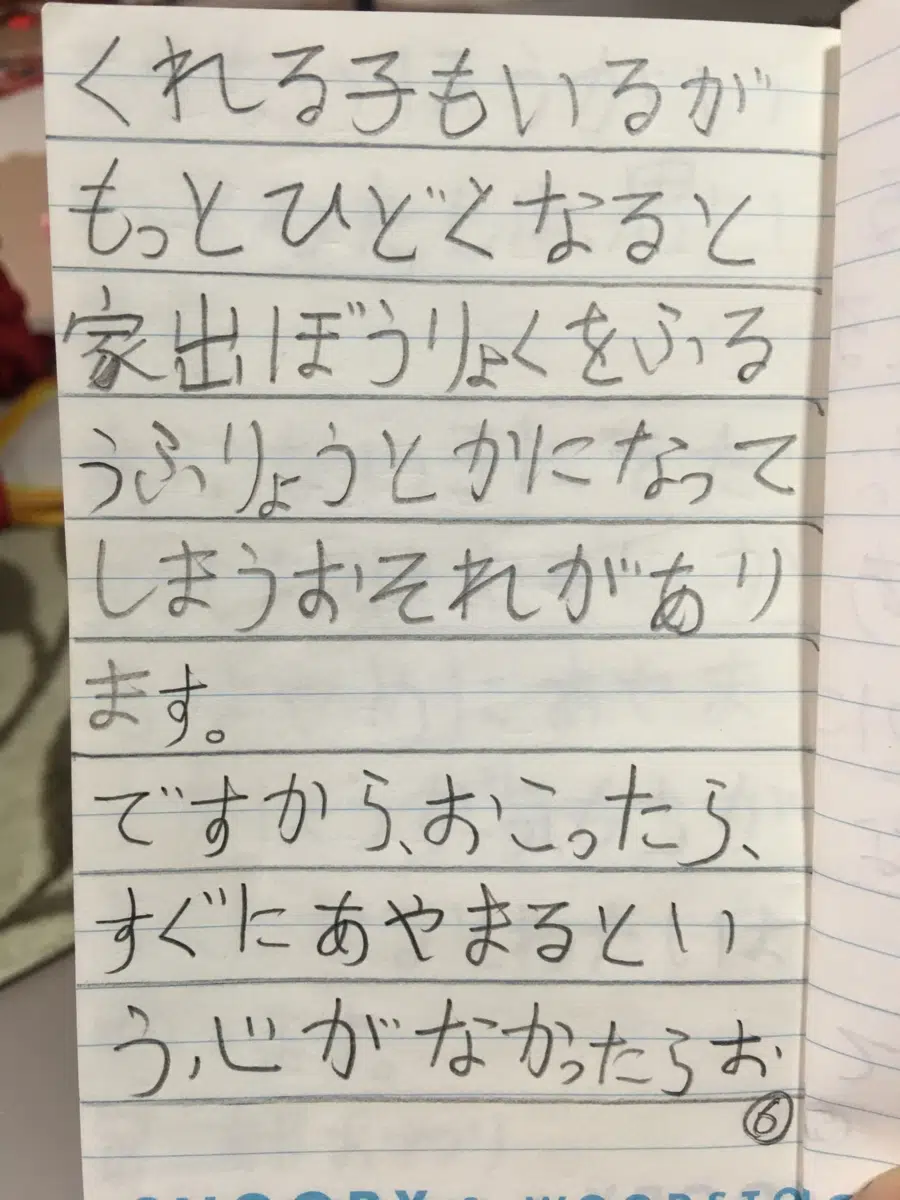 くれる子もいるが
もっとひどくなると
家出ぼうりょくをふる
うふりょうとかになって
しまうおそれがあり
ます。
ですから、おこったら、
すぐにあやまるとい
う心がなかったらお
⑥